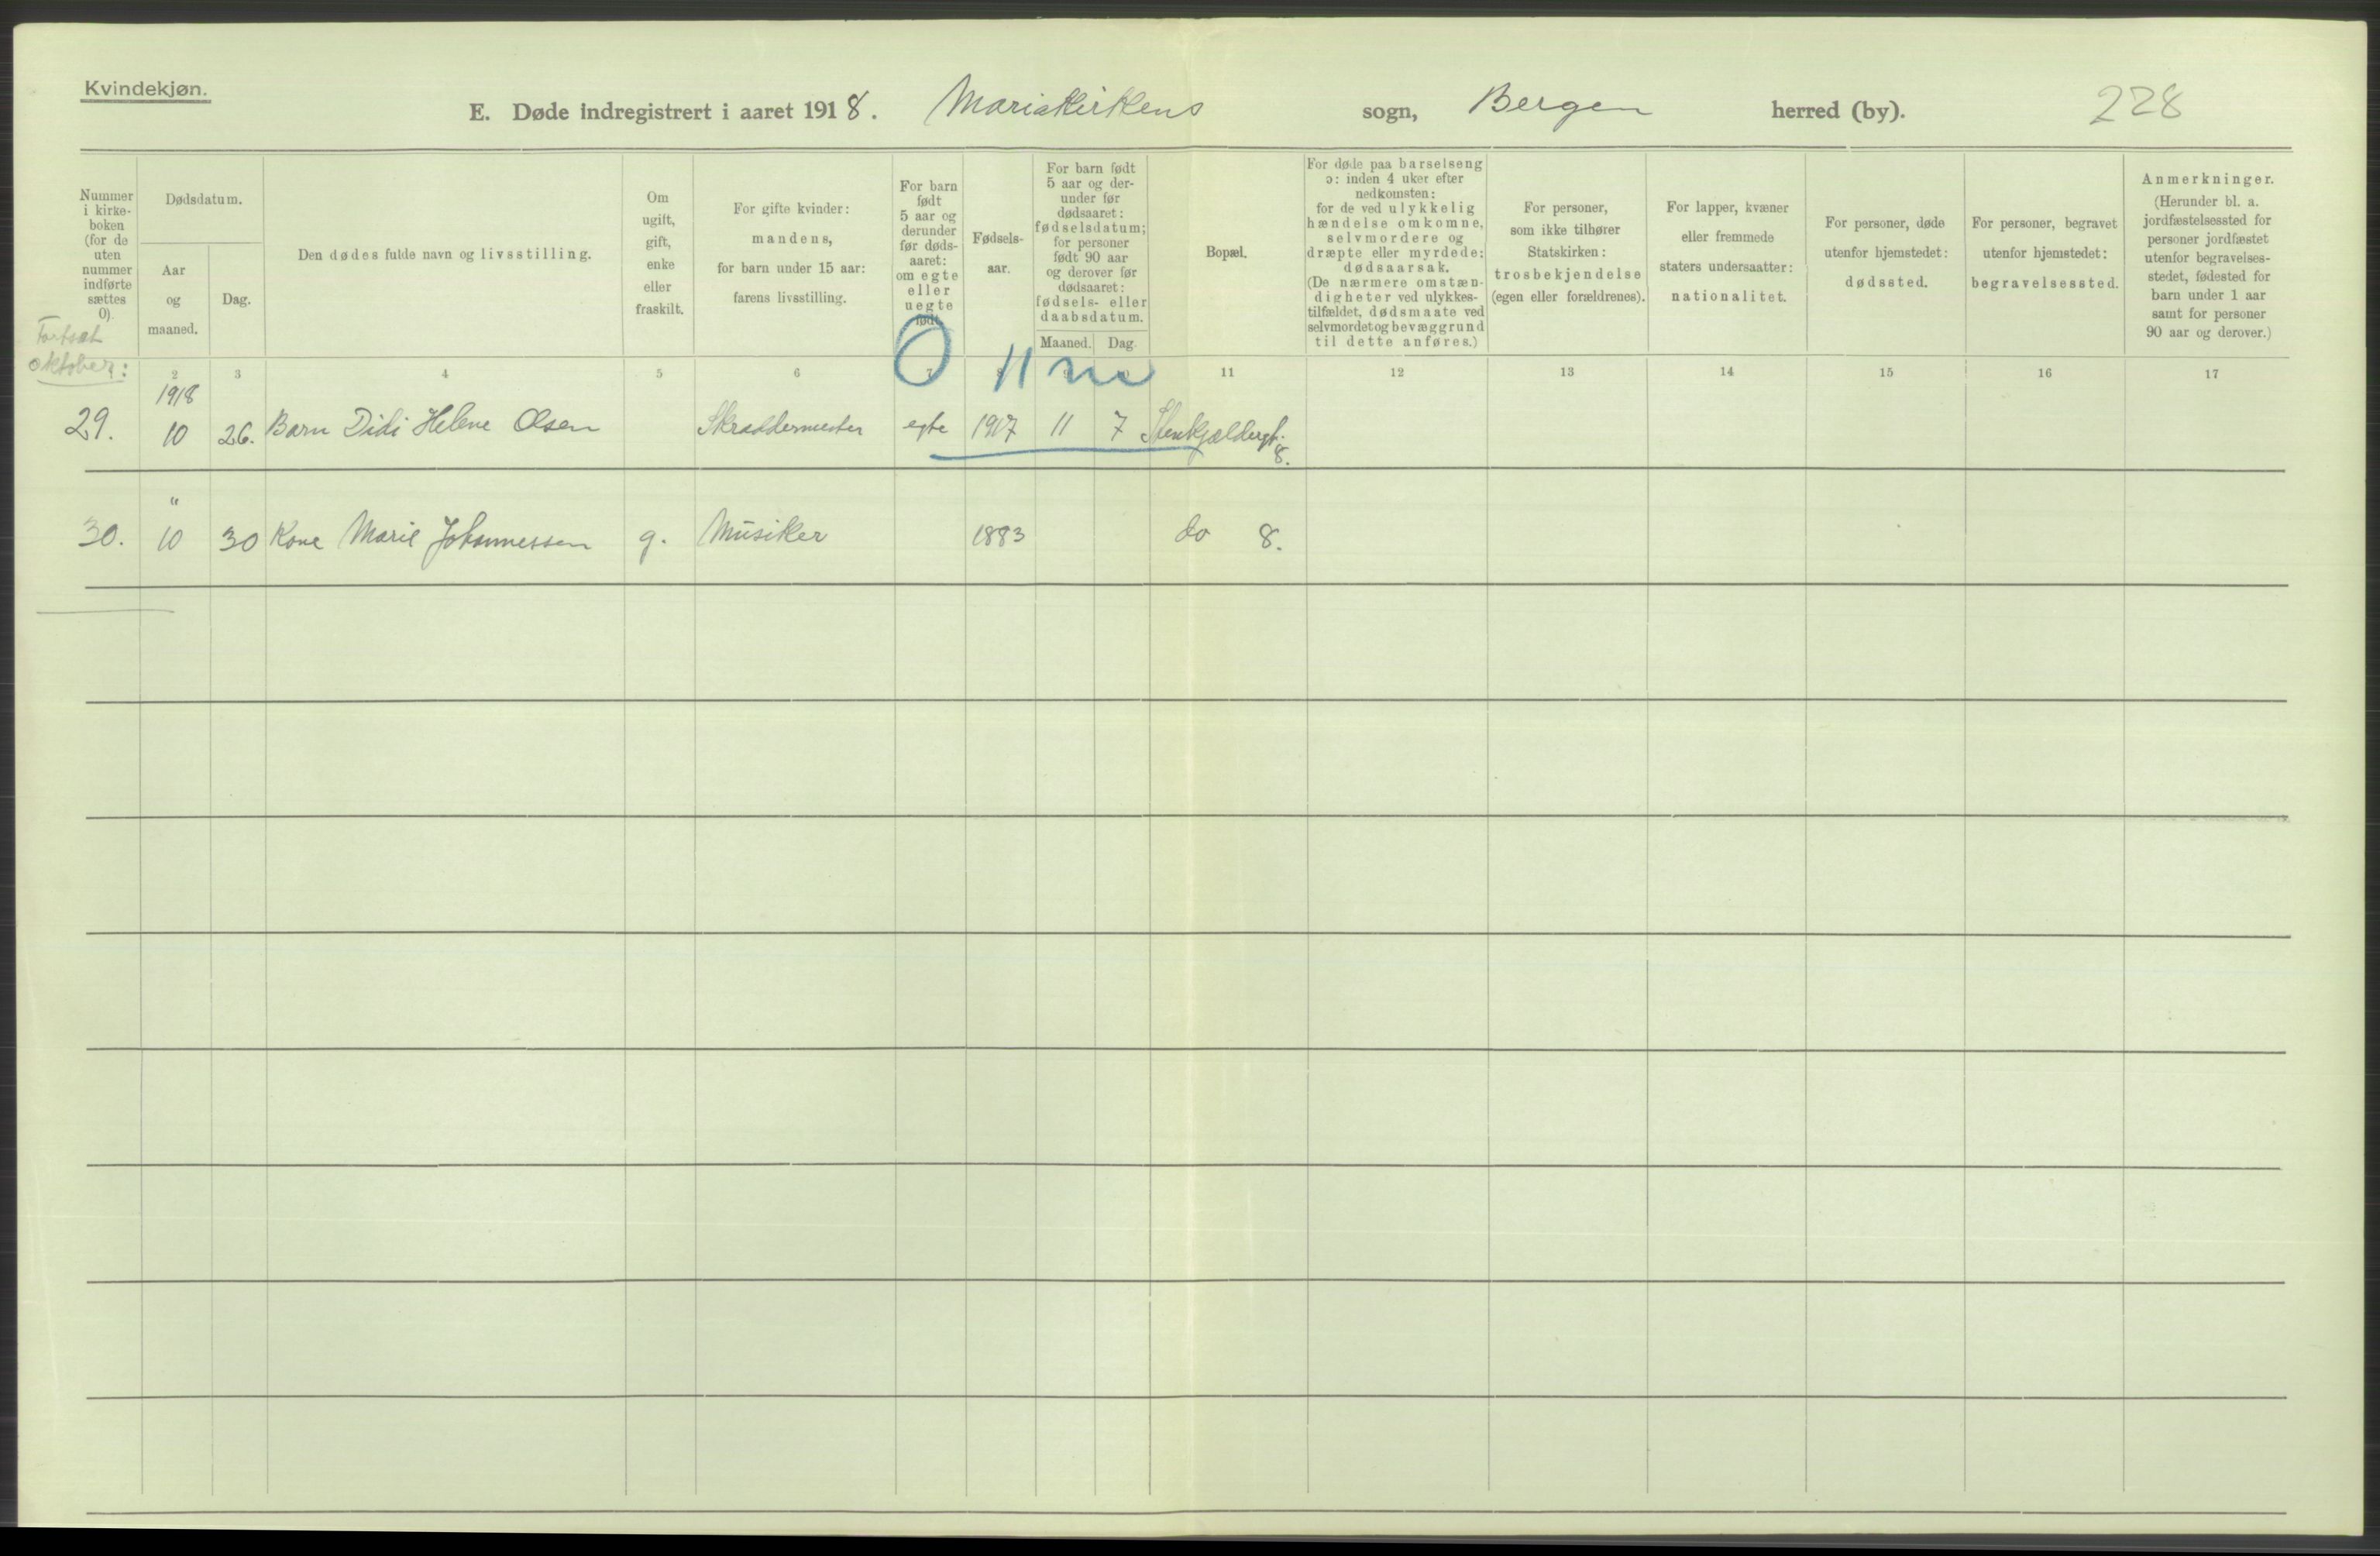 Kvindekjøn.
E. Døde indregistrert i aaret 1918. Mariakirkens sogn, Bergen herred (by). 228
Nummer
i kirke-
boken
(for de
uten
nummer
indførte
sættes
0).
Dødsdatum.
Aar
og
maaned.
Dag.
Den dødes fulde navn og livsstilling.
Om
ugift,
gift,
enke
eller
fraskilt.
For gifte kvinder:
mandens,
for barn under 15 aar:
farens livsstilling.
For barn
født
5 aar og
derunder
før døds-
aaret:
om egte
eller
uegte
født
Fødsels-
aar.
For barn født
5 aar og der-
under før
dødsaaret:
fødselsdatum;
for personer
født 90 aar
og derover før
dødsaaret:
fødsels- eller
daabsdatum.
Maaned. Dag.
Bopæl.
For døde paa barselseng
ɔ: inden 4 uker efter
nedkomsten:
for de ved ulykkelig
hændelse omkomne,
selvmordere og
dræpte eller myrdede:
dødsaarsak.
(De nærmere omstæn-
digheter ved ulykkes-
tilfældet, dødsmaate ved
selvmordet og bevæggrund
til dette anføres.)
For personer,
som ikke tilhører
Statskirken:
trosbekjendelse
(egen eller forældrenes).
For lapper, kvæner
eller fremmede
staters undersaatter:
nationalitet.
For personer, døde
utenfor hjemstedet:
dødssted.
For personer, begravet
utenfor hjemstedet:
begravelsessted.
Anmerkninger.
(Herunder bl. a.
jordfæstelsessted for
personer jordfæstet
utenfor begravelses-
stedet, fødested for
barn under 1 aar
samt for personer
90 aar og derover.)
Fortsat
oktober:
2 3 4 5 6 7 8 11 12 13 14 15 16 17
0 11
1918
29. 10 26. Barn Didi Helene Olsen Skræddermester egte 1907 11 7 Stenkjældergt. 8.
"
30. 10 30 Kone Marie Johannessen g. Musiker 1883 do 8.